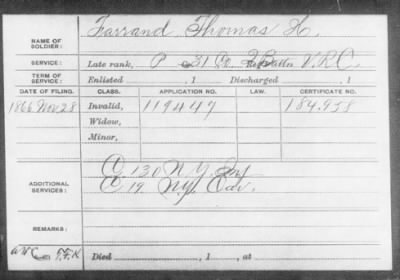 NAME OF SOLDIER: Farrand Thomas H.
SERVICE: Late rank, P 31 Co. 2 Battn V.R.C.
TERM OF SERVICE: Enlisted , 1 Discharged , 1
DATE OF FILING. CLASS. APPLICATION NO. LAW. CERTIFICATE NO.
1866 Nov. 28 Invalid, 119447 184.958
Widow,
Minor,
ADDITIONAL SERVICES: C. 130 N.Y. Inf
C. 19. N.Y. Cav.
REMARKS:
Died , 1 , at